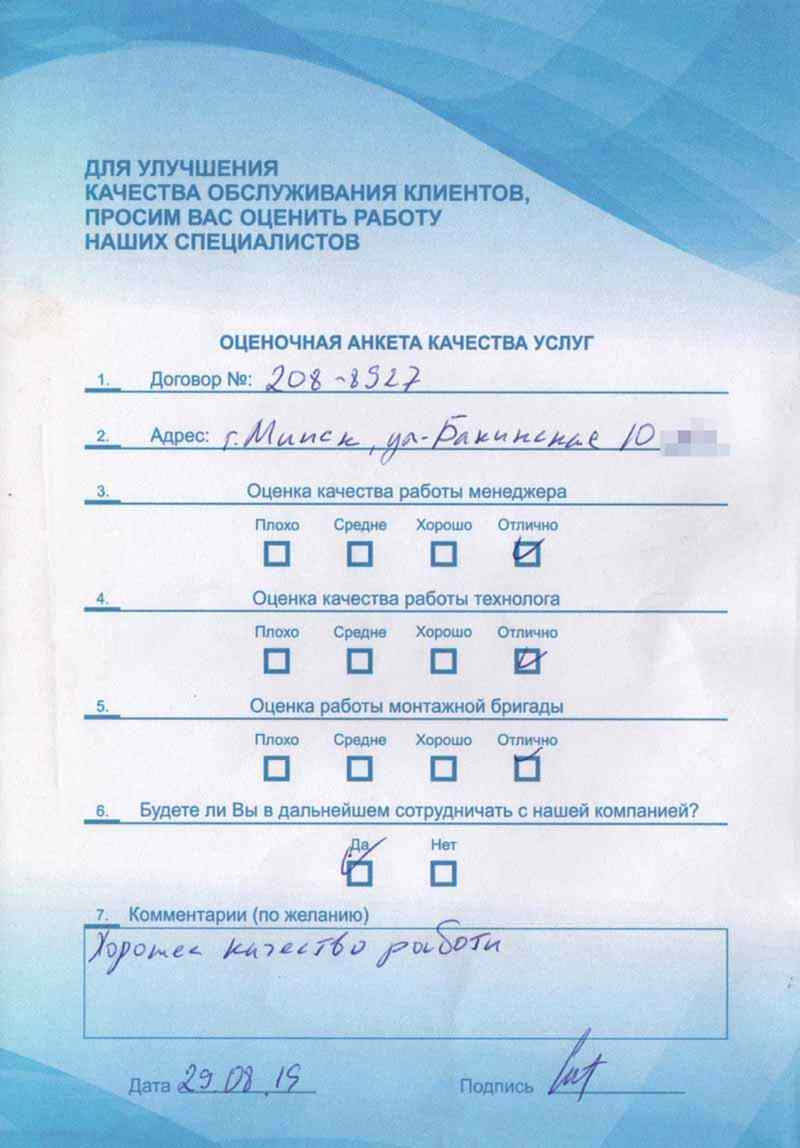 ДЛЯ УЛУЧШЕНИЯ
КАЧЕСТВА ОБСЛУЖИВАНИЯ КЛИЕНТОВ,
ПРОСИМ ВАС ОЦЕНИТЬ РАБОТУ
НАШИХ СПЕЦИАЛИСТОВ
ОЦЕНОЧНАЯ АНКЕТА КАЧЕСТВА УСЛУГ
1. Договор №: 208-8927
2. Адрес: г. Минск, ул. Бакинская 10
3. Оценка качества работы менеджера
Плохо Средне Хорошо Отлично
4. Оценка качества работы технолога
Плохо Средне Хорошо Отлично
5. Оценка работы монтажной бригады
Плохо Средне Хорошо Отлично
6. Будете ли Вы в дальнейшем сотрудничать с нашей компанией?
Да Нет
7. Комментарии (по желанию)
Хорошее качество работы
Дата 29.08.19 Подпись